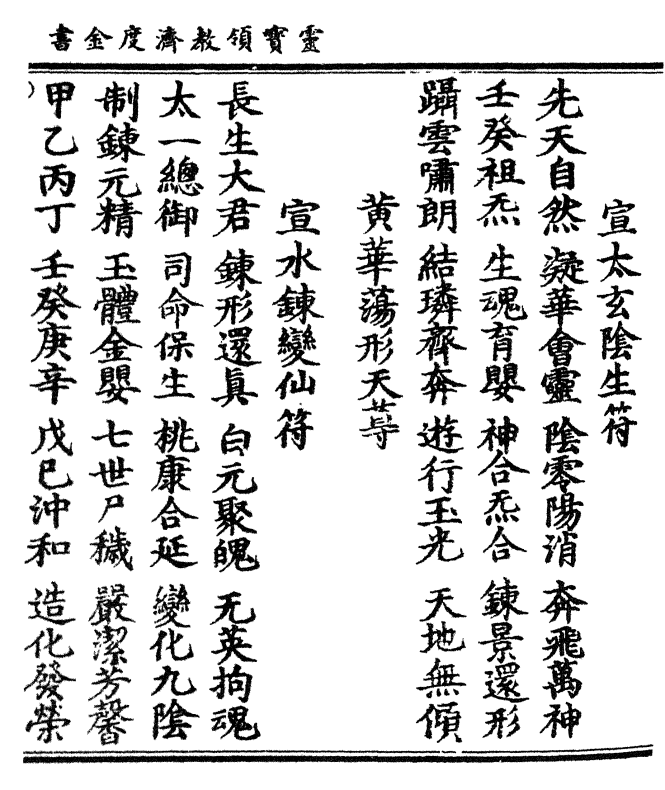 靈寶領教濟度金書
宣太玄陰生符
先天自然 凝華會靈 陰零陽消 奔飛萬神
壬癸祖炁 生魂育嬰 神合炁合 鍊景還形
躡雲嘯朗 結璘齊奔 遊行玉光 天地無傾
黃華蕩形天尊
宣水鍊變仙符
長生大君 鍊形還眞 白元聚魄 无英拘魂
太一總御 司命保生 桃康合延 變化九陰
制鍊元精 玉體金嬰 七世尸穢 嚴潔芳馨
甲乙丙丁 壬癸庚辛 戊巳沖和 造化發榮